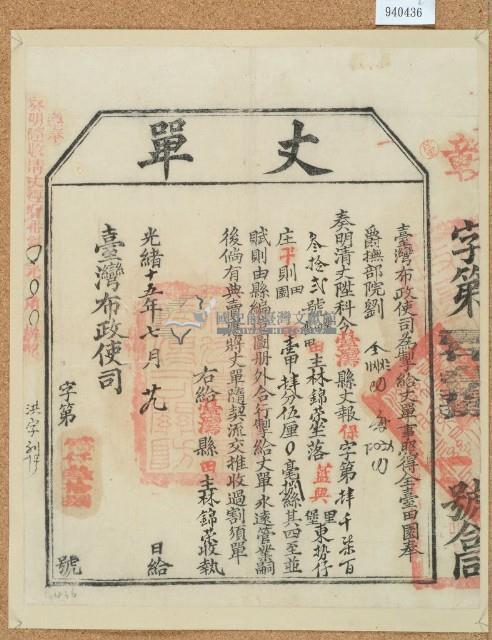 940436
丈單
臺灣布政使司為掣給丈單事照得全臺田園奉
爵撫部院劉
奏明清丈陞科今臺灣縣丈報保字第肆千柒百
叁拾貳號田主林錦榮坐落藍興里堡東勢仔
庄下則田園壹甲肆分伍厘0毫據縣其四至並
賦則由縣編造圖冊外合行掣給丈單永遠管業嗣
後倘有典賣應將丈單隨契流交推收過割須單
右給臺灣縣田主林錦榮收執
光緒十五年七月 日給
臺灣布政使司
字第 號
字第 號合同
章